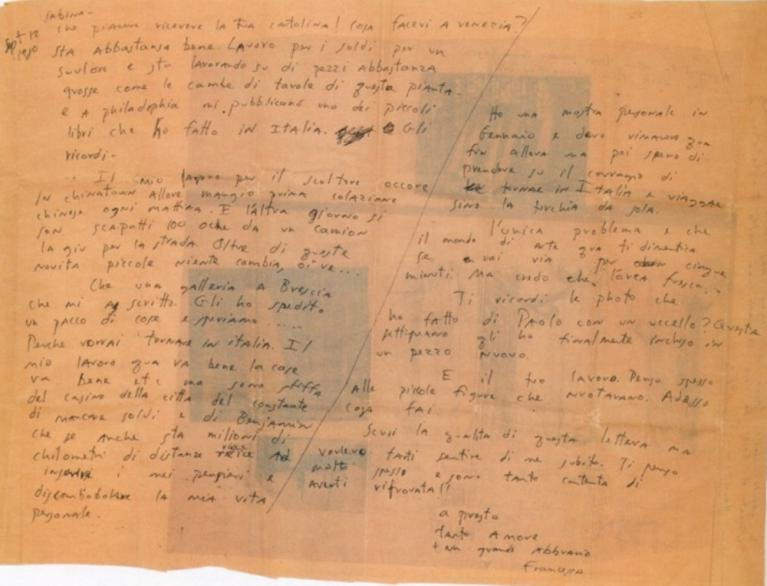 Sabina -
che piacere ricevere la tua cartolina! Cosa facevi a Venezia?
Sta abbastanza bene. Lavoro per i soldi per un
scultore e sto lavorando su di pezzi abbastanza
grosse come le cambe di tavole di questa pianta.
e a Philadelphia mi pubblicano uno dei piccoli
libri che ho fatto in Italia. Gli
ricordi-
Il mio lavoro per il scultore occore
in chinatown allore mangio prima colazione
chinese ogni mattina. E l'altra giorno si
son scapatti 100 oche da un camion
la giu per la strada. Oltre di queste
novita piccole niente cambia, oi've...
Che una galleria a Brescia
che mi a scritto. Gli ho spedito
un pacco di cose e speriamo.....
Perche vorrai tornare in italia. Il
mio lavoro qua va bene la cose
va bene etc ma sono stuffa
del casino della citta del constante
di mancare soldi e di Benjamin
che se anche sta milioni di
chilometri di distanze
i miei pensieri e
discombobolare la mia vita
personale.
Ho una mostra personale in
Gennaio e devo rimanere qua
fin allora ma poi spero di
prendere su il corraggio di
tornare in Italia e viaggare
sino la turchia da sola.
l'unica problema e che
il mondo di arte qua ti dimentica
se vai via per cinque
minuti ma credo che l'area fresca..
Ti ricordi le photo che
ho fatto di Paolo con un uccello? Questa
settiguano gli ho finalmente incluso in
un pezzo nuovo.
E il tuo lavoro. Penso spesso
alle piccole figure che nuotavano. Adesso
cosa fai
Scusi la qualita di questa lettera ma
volevo tanti sentire di me subito. Ti penso
molto spesso e sono tanto contenta di
averti rifrovata!!
a presto
tanto Amore
+ un grande abbraccio
Francesca